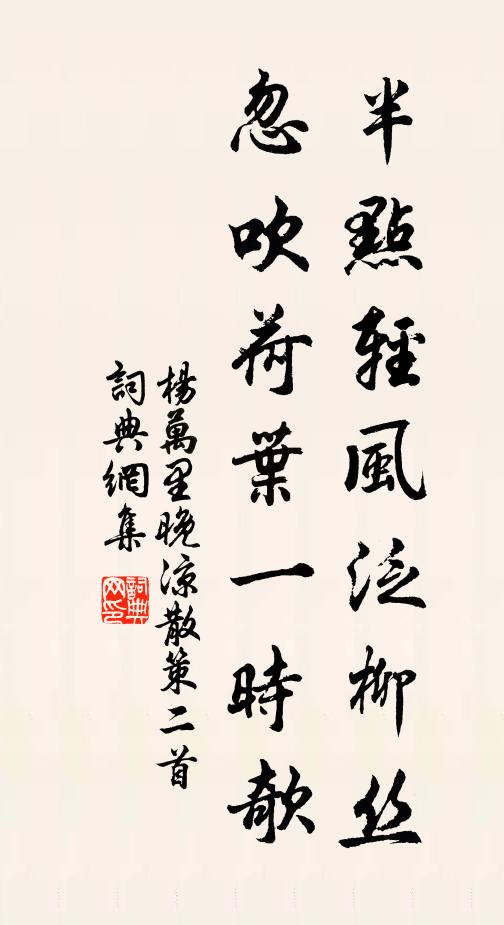 半點輕風泛柳丝
忽吹荷葉一時欹
楊萬里晚涼散策二首
詞典網集
詞典网印